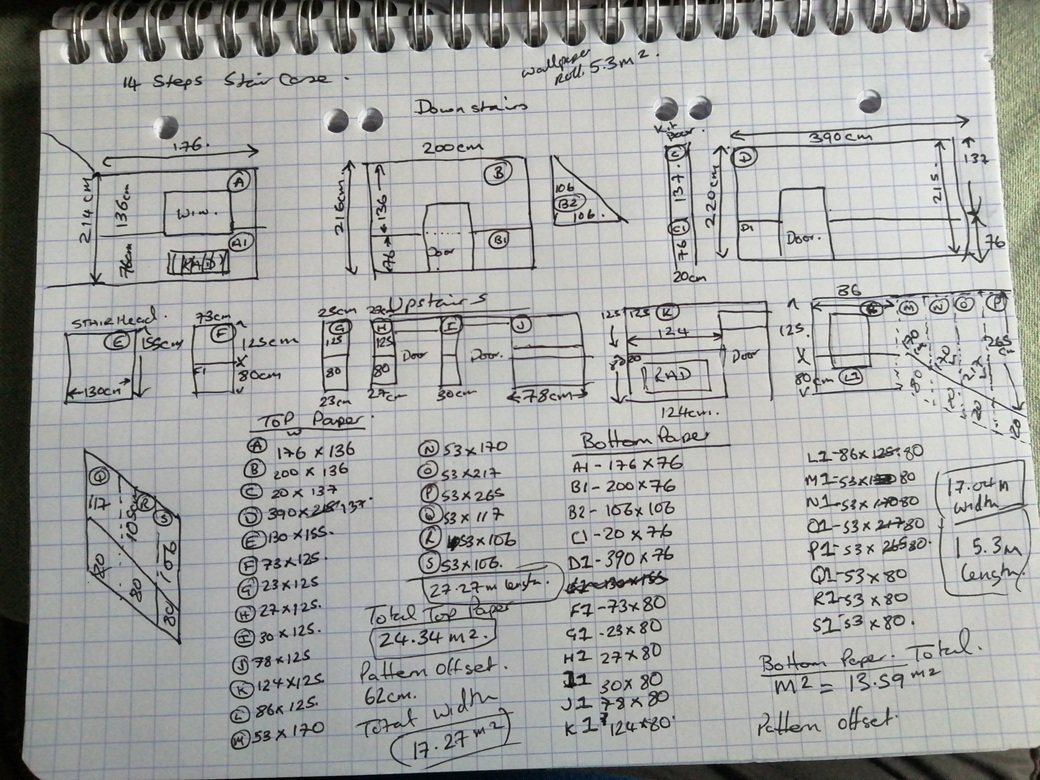 14 Steps Stair Case.
wallpaper
roll. 5.3 m².
Downstairs
176.
214cm
136cm
76cm
WIN.
A
A1
RAD
200cm
216cm
136
76
B
B1
Door
106
B2
106.
Kit
Door.
C
137.
C1
76
20cm
220cm
390cm
D
D1
Door.
215.
137
76
Upstairs
STAIR Head.
E
155cm
130cm
73cm
F
F1
125cm
80cm
23cm
G
125
80
23cm
27cm
H
125
80
27cm
Door
I
30cm
Door.
J
78cm
125
125
K
124
RAD
Door
124cm.
125.
80cm
86
L1
M
N
O
P
170
217
265
cm
80
Q
117
R
105cm
S
106
80
80
80
TOP Paper
W
A 176 x 136
B 200 x 136
C 20 x 137
D 390 x 137
E 130 x 155.
F 73 x 125
G 23 x 125
H 27 x 125.
I 30 x 125.
J 78 x 125
K 124 x 125
L 86 x 125.
M 53 x 170
N 53 x 170
O 53 x 217
P 53 x 265
Q 53 x 117
R 53 x 106
S 53 x 106.
27.27m length.
Total Top Paper
24.34 m².
Pattern Offset.
62cm.
Total width
17.27 m²
Bottom Paper
A1 - 176 x 76
B1 - 200 x 76
B2 - 106 x 106
C1 - 20 x 76
D1 - 390 x 76
E1 - 130 x 155
F1 - 73 x 80
G1 - 23 x 80
H1 27 x 80
I1 30 x 80
J1 78 x 80
K1 124 x 80
L1 - 86 x 80
M1 - 53 x 80
N1 - 53 x 80
O1 - 53 x 80
P1 - 53 x 80.
Q1 - 53 x 80
R1 - 53 x 80
S1 - 53 x 80.
17.04m
width
15.3m
length.
Bottom Paper. Total.
M² = 13.59 m²
Pattern offset.